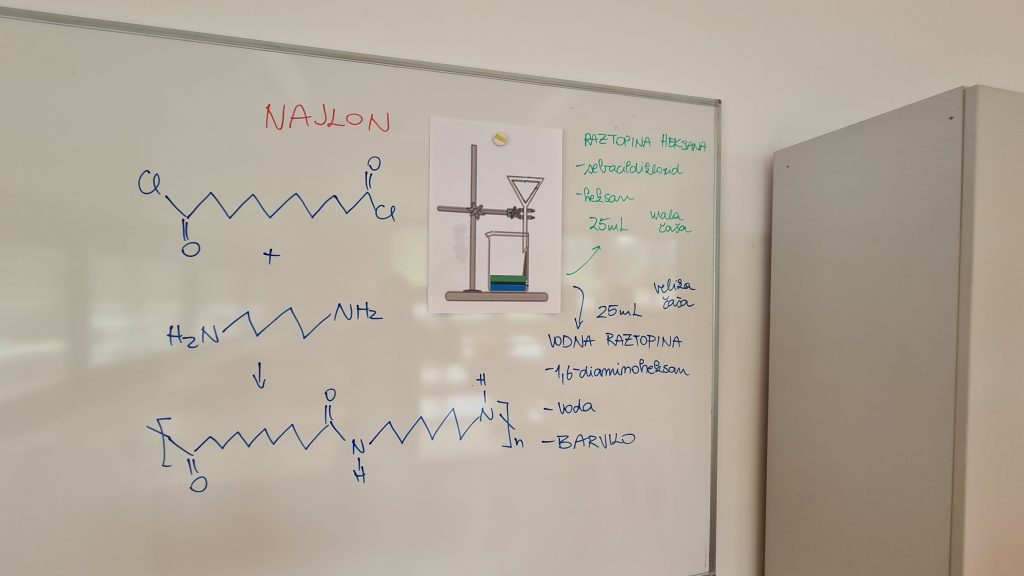 NAJLON
Cl
O
O
Cl
+
H₂N
NH₂
O
O
N
H
H
N
n
RAZTOPINA HEKSANA
-sebacildiklorid
-heksan
25mL
mala
čaša
velika
čaša
25mL
VODNA RAZTOPINA
-1,6-diaminoheksan
-voda
-BARVILO